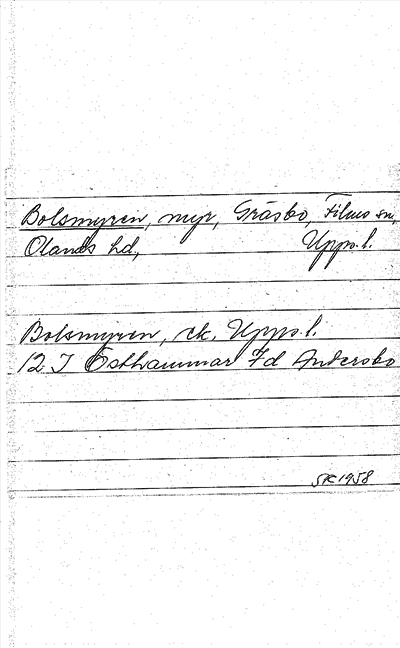 Bolsmyren, myr, Gräsbo, Films sn,
Olands hd, Upps. l.
Bolsmyren, ek. Upps. l.
12 I Östhammar 7d Andersbo
SK 1958